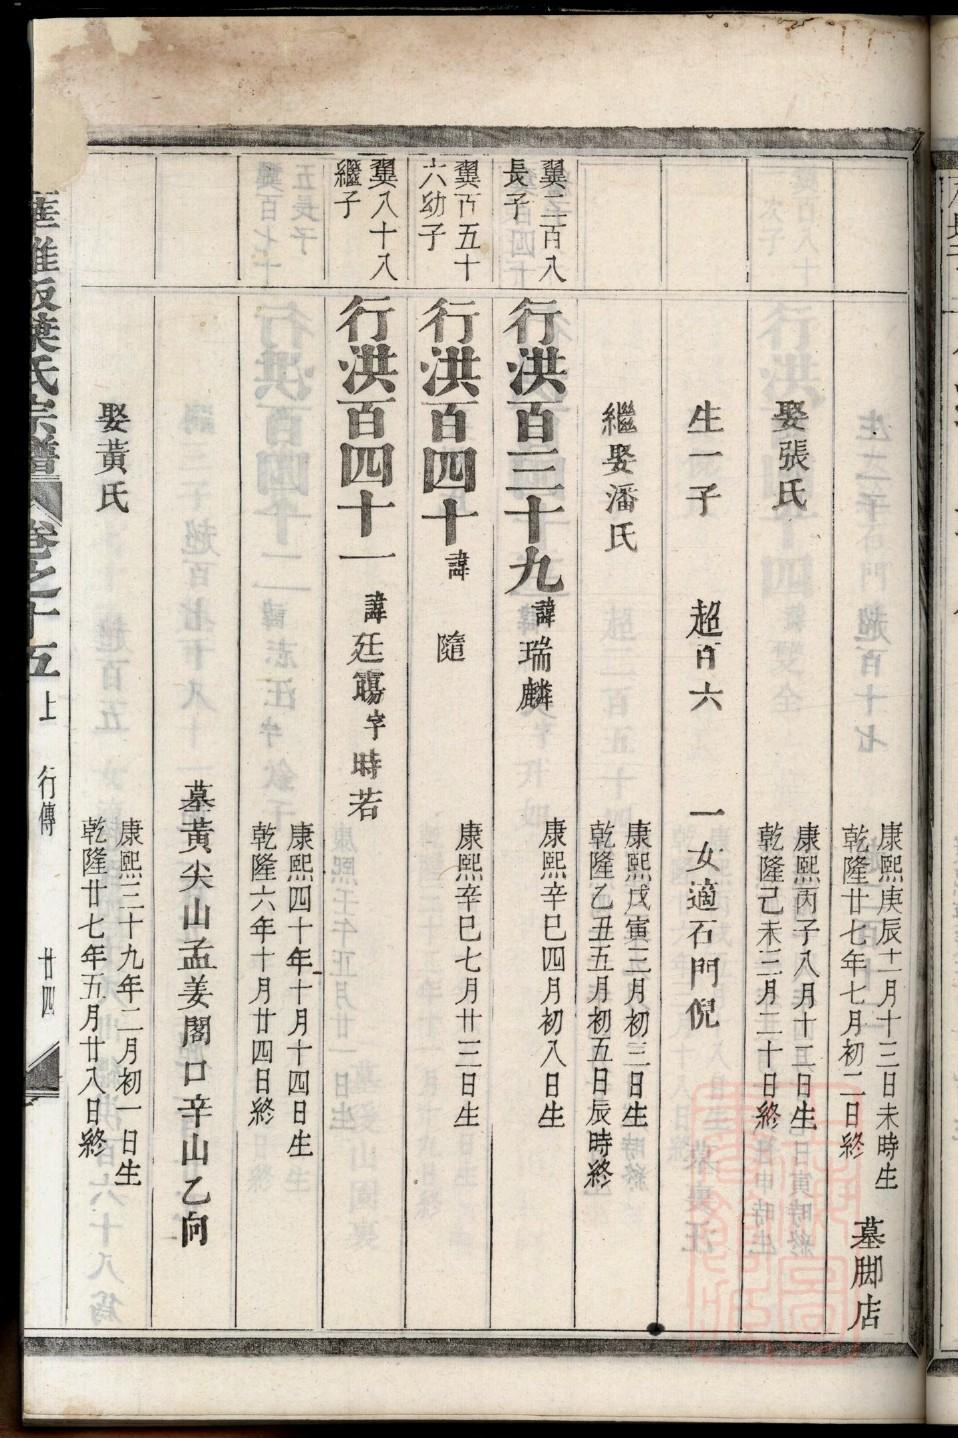 康熙庚辰十一月十三日未時生
乾隆廿七年七月初二日終
墓脚店
娶張氏
康熙丙子八月十五日生
乾隆己未三月二十日終
生一子 超百六 一女適石門倪
繼娶潘氏
康熙戊寅三月初三日生
乾隆乙丑五月初五日辰時終
翼二百八
長子
行洪百三十九 諱瑞麟
康熙辛巳四月初八日生
翼百五十
六幼子
行洪百四十 諱 隨
康熙辛巳七月廿三日生
翼八十八
繼子
行洪百四十一 諱廷鶚字時若
康熙四十年十月十四日生
乾隆六年十月廿四日終
墓黃尖山孟姜閣口辛山乙向
娶黃氏
康熙三十九年二月初一日生
乾隆廿七年五月廿八日終
葉氏宗譜 卷之十五 上 行傳 廿四